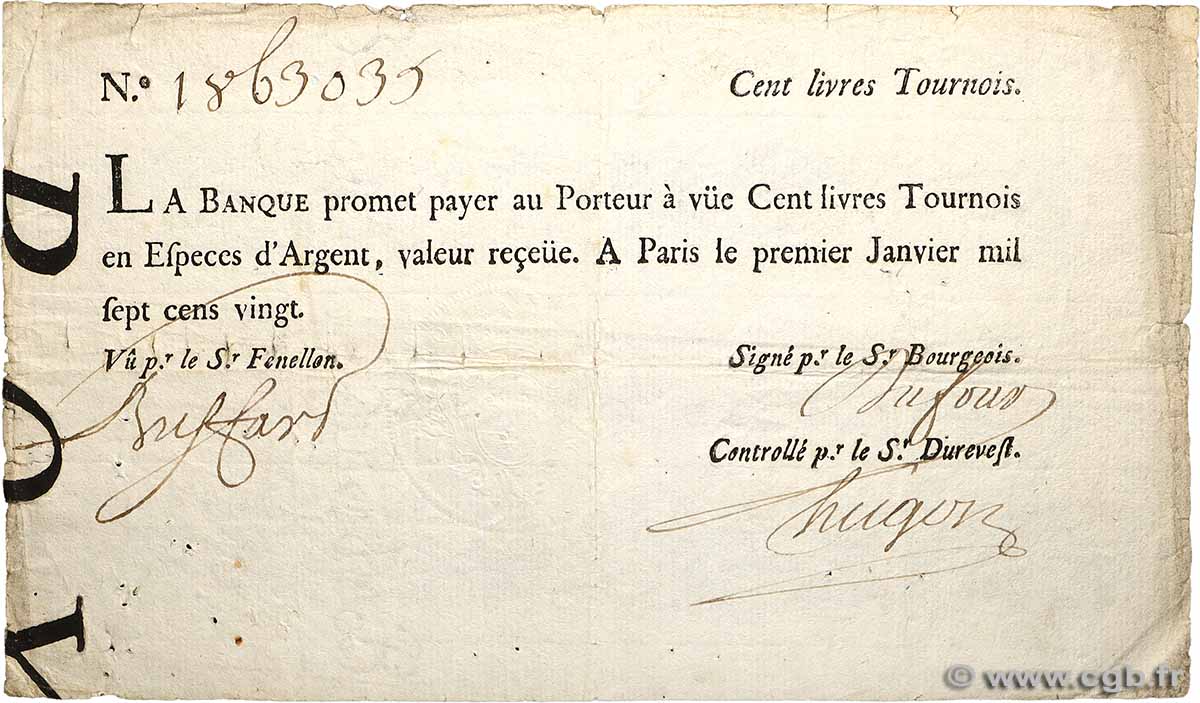 N.º 1863035
Cent livres Tournois.
LA BANQUE promet payer au Porteur à vüe Cent livres Tournois
en Eſpeces d'Argent, valeur reçeüe. A Paris le premier Janvier mil
ſept cens vingt.
Vû p.r le S.r Fenellon.
Signé p.r le S.r Bourgeois.
Dufour
Controllé p.r le S.r Dureveſt.
hugon
© www.cgb.fr